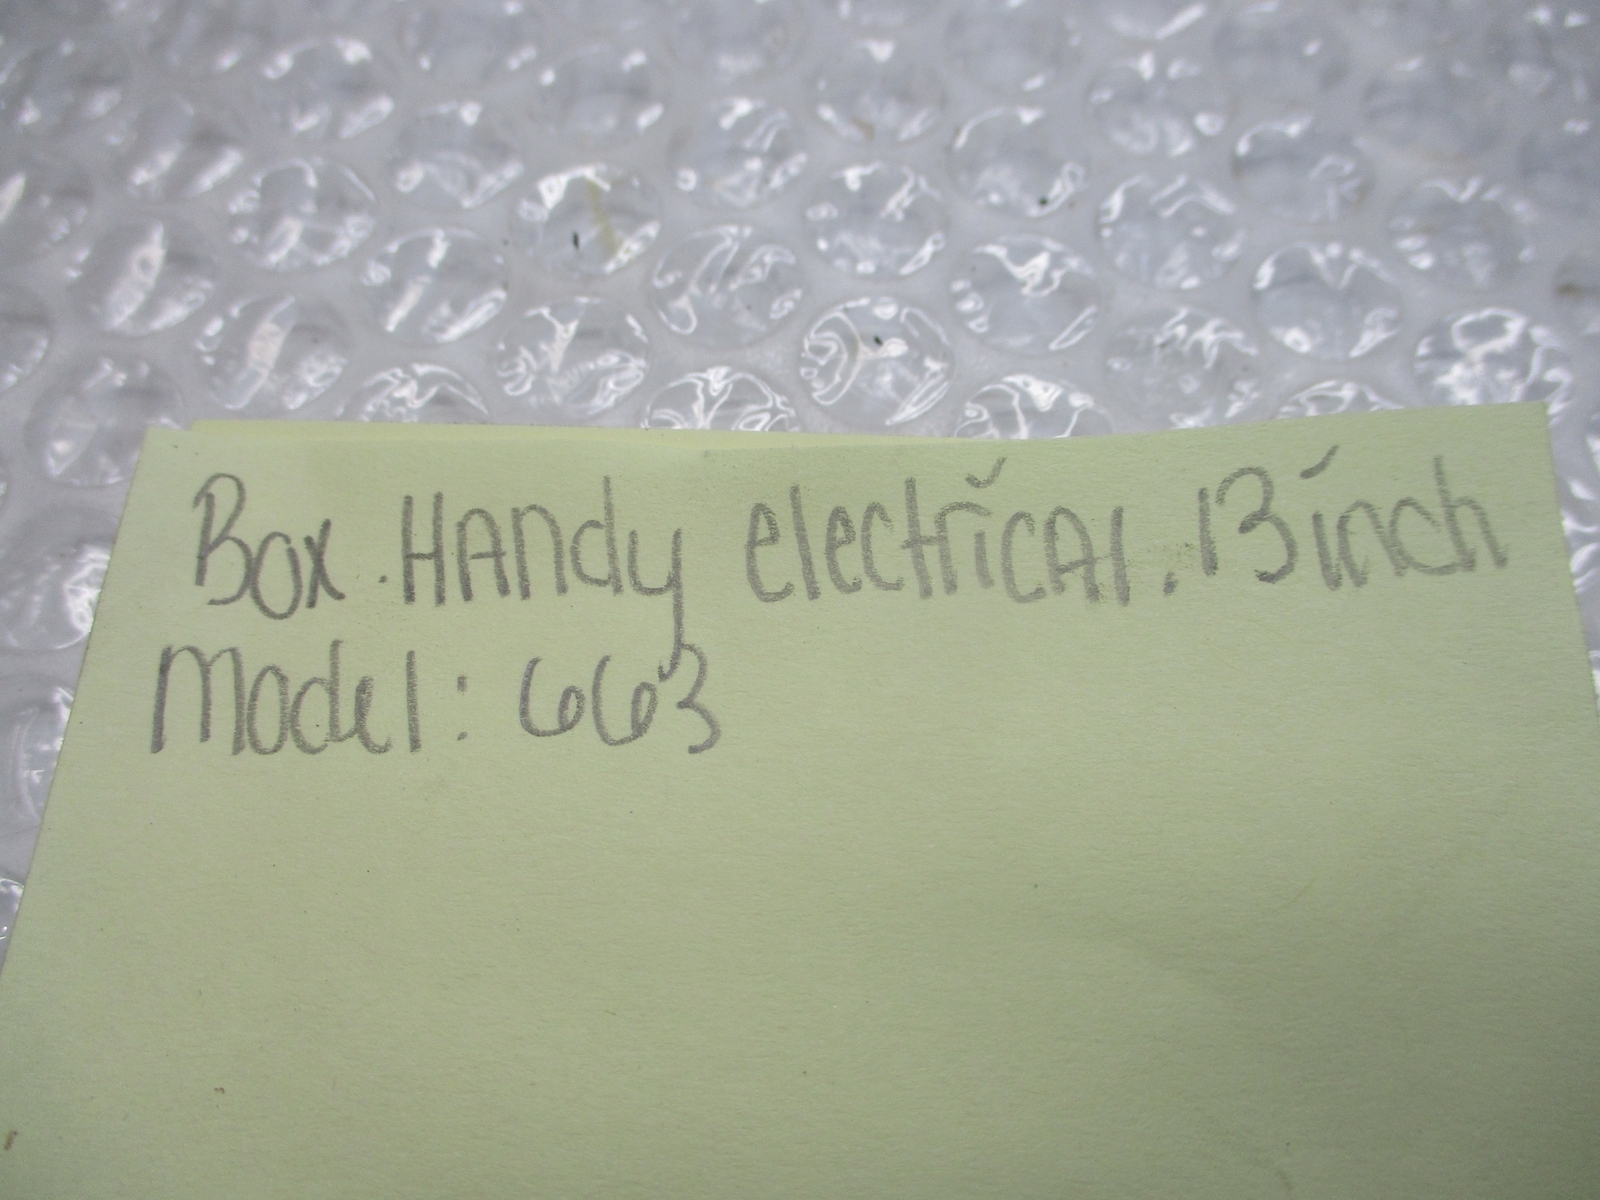 Box. HANdy electricAl. 13 inch
Model: 663